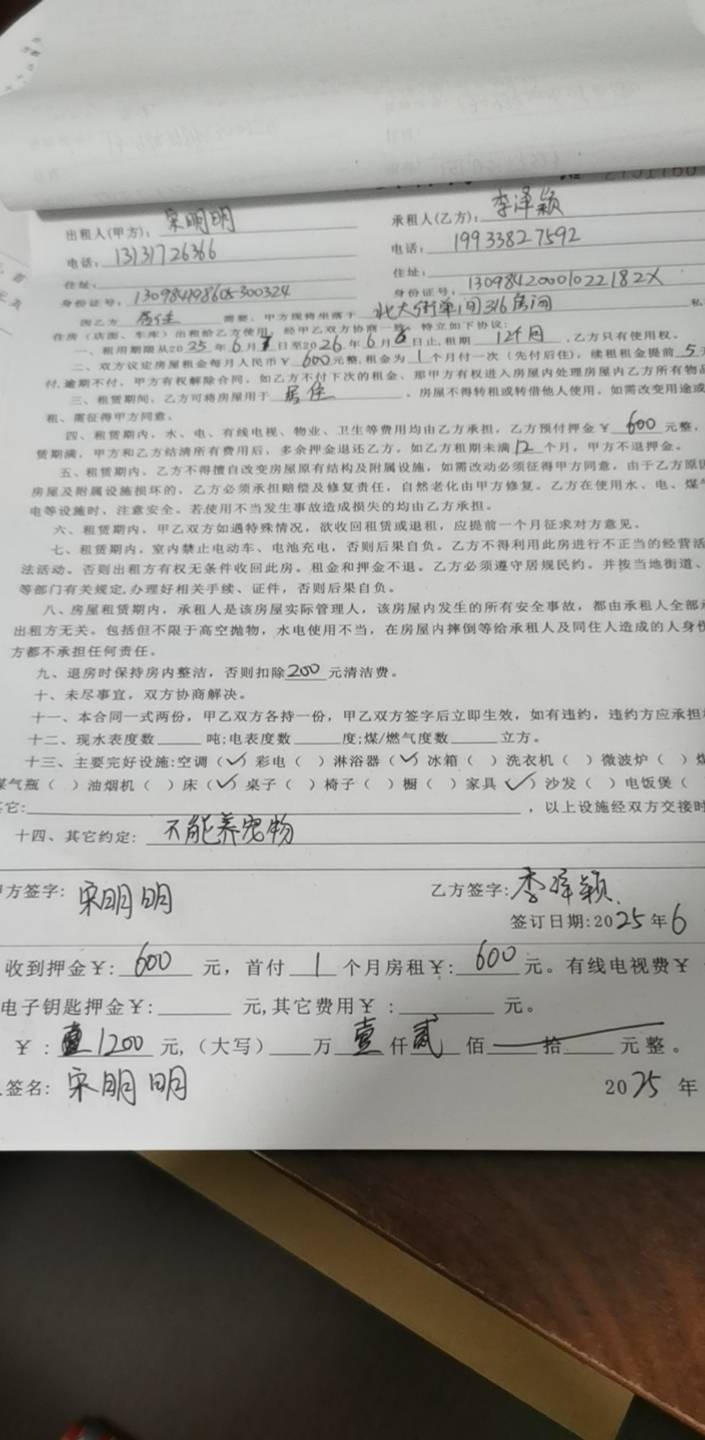 出租人(甲方): 宋明明 承租人(乙方): 李泽颖
电话: 13131726366 电话: 19933827592
住址: 住址:
身份证号: 身份证号: 13098420001022182X
因乙方 居住 需要,甲方现将坐落于 北大街单间316房间
住房(店面、车库)出租给乙方使用,经甲乙双方协商一致,特立如下协议:
一、租用期限从2025年6月 日至2026年6月8日止,租期 12个月 ,乙方只有使用权。
二、双方议定房屋租金每月人民币¥ 600元整,租金为 1 个月付一次(先付后住),续租租金提前 5
付,逾期不付,甲方有权解除合同,如乙方不付下次的租金、那甲方有权进入房屋内处理房屋内乙方所有物品
三、租赁期间,乙方可将房屋用于 居住 ,房屋不得转租或转借他人使用,如需改变用途或
租、需征得甲方同意。
四、租赁期内,水、电、有线电视、物业、卫生等费用均由乙方承担,乙方预付押金¥ 600 元整,
赁期满,甲方和乙方结清所有费用后,多余押金退还乙方。如乙方租期未满12个月,甲方不退押金。
五、租赁期内,乙方不得擅自改变房屋原有结构及附属设施,如需改动必须征得甲方同意。由于乙方原
房屋及附属设施损坏的,乙方必须承担赔偿及修复责任,自然老化由甲方修复。乙方在使用水、电、煤
电等设施时,注意安全。若使用不当发生事故造成损失的均由乙方承担。
六、租赁期内,甲乙双方如遇特殊情况,欲收回租赁或退租,应提前一个月征求对方意见。
七、租赁期内,室内禁止电动车、电池充电,否则后果自负。乙方不得利用此房进行不正当的经营活
法活动。否则出租方有权无条件收回此房。租金和押金不退。乙方必须遵守居规民约。并按当地街道、
等部门有关规定,办理好相关手续、证件,否则后果自负。
八、房屋租赁期内,承租人是该房屋实际管理人,该房屋内发生的所有安全事故,都由承租人全部
出租方无关。包括但不限于高空抛物,水电使用不当,在房屋内摔倒等给承租人及同住人造成的人身
方都不承担任何责任。
九、退房时保持房内整洁,否则扣除200元清洁费。
十、未尽事宜,双方协商解决。
十一、本合同一式两份,甲乙双方各持一份,甲乙双方签字后立即生效,如有违约,违约方应承担
十二、现水表度数 吨;电表度数 度;煤/燃气度数 立方。
十三、主要完好设施:空调(✓)彩电( )淋浴器(✓)冰箱( )洗衣机( )微波炉( )
气瓶( )油烟机( )床(✓)桌子( )椅子( )橱( )家具(✓)沙发( )电饭煲(
它: ,以上设施经双方交接时
十四、其它约定: 不能养宠物
方签字: 宋明明 乙方签字: 李泽颖
签订日期:2025年6
收到押金¥: 600 元,首付 1 个月房租¥: 600 元。有线电视费¥
电子钥匙押金¥: 元,其它费用¥: 元。
¥: 1200 元,(大写) 万 壹 仟 贰 佰 拾 元整。
签名: 宋明明 2025年